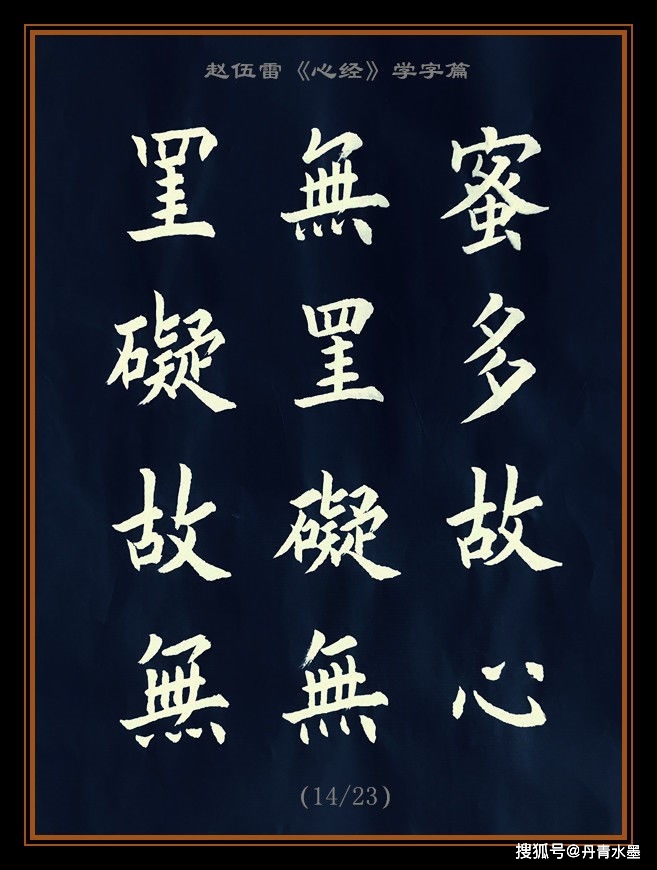 赵伍雷《心经》学字篇
蜜多故心
無罣礙無
罣礙故無
(14/23)
搜狐号@丹青水墨